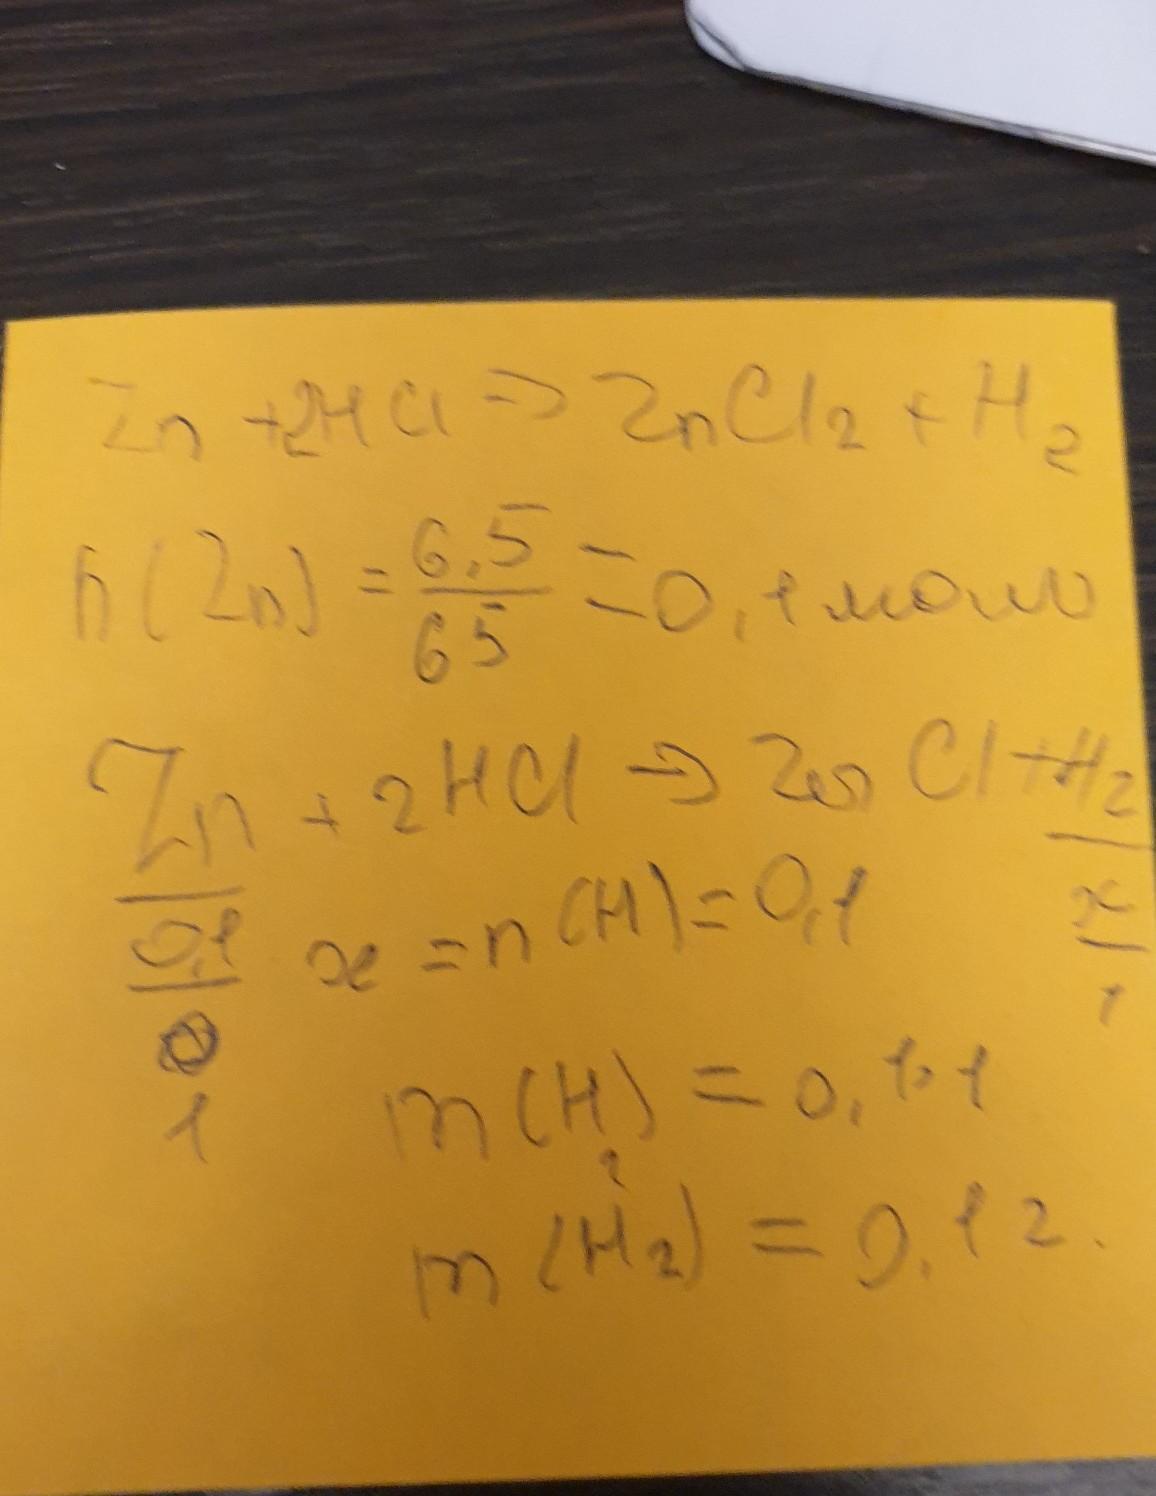 Zn + 2HCl → ZnCl2 + H2
n(Zn) = 6,5/65 = 0,1 моль
Zn + 2HCl → Zn Cl + H2
0,1/1 x = n(H) = 0,1 x/1
m(H2) = 0,1·1
m(H2) = 0,1 г.